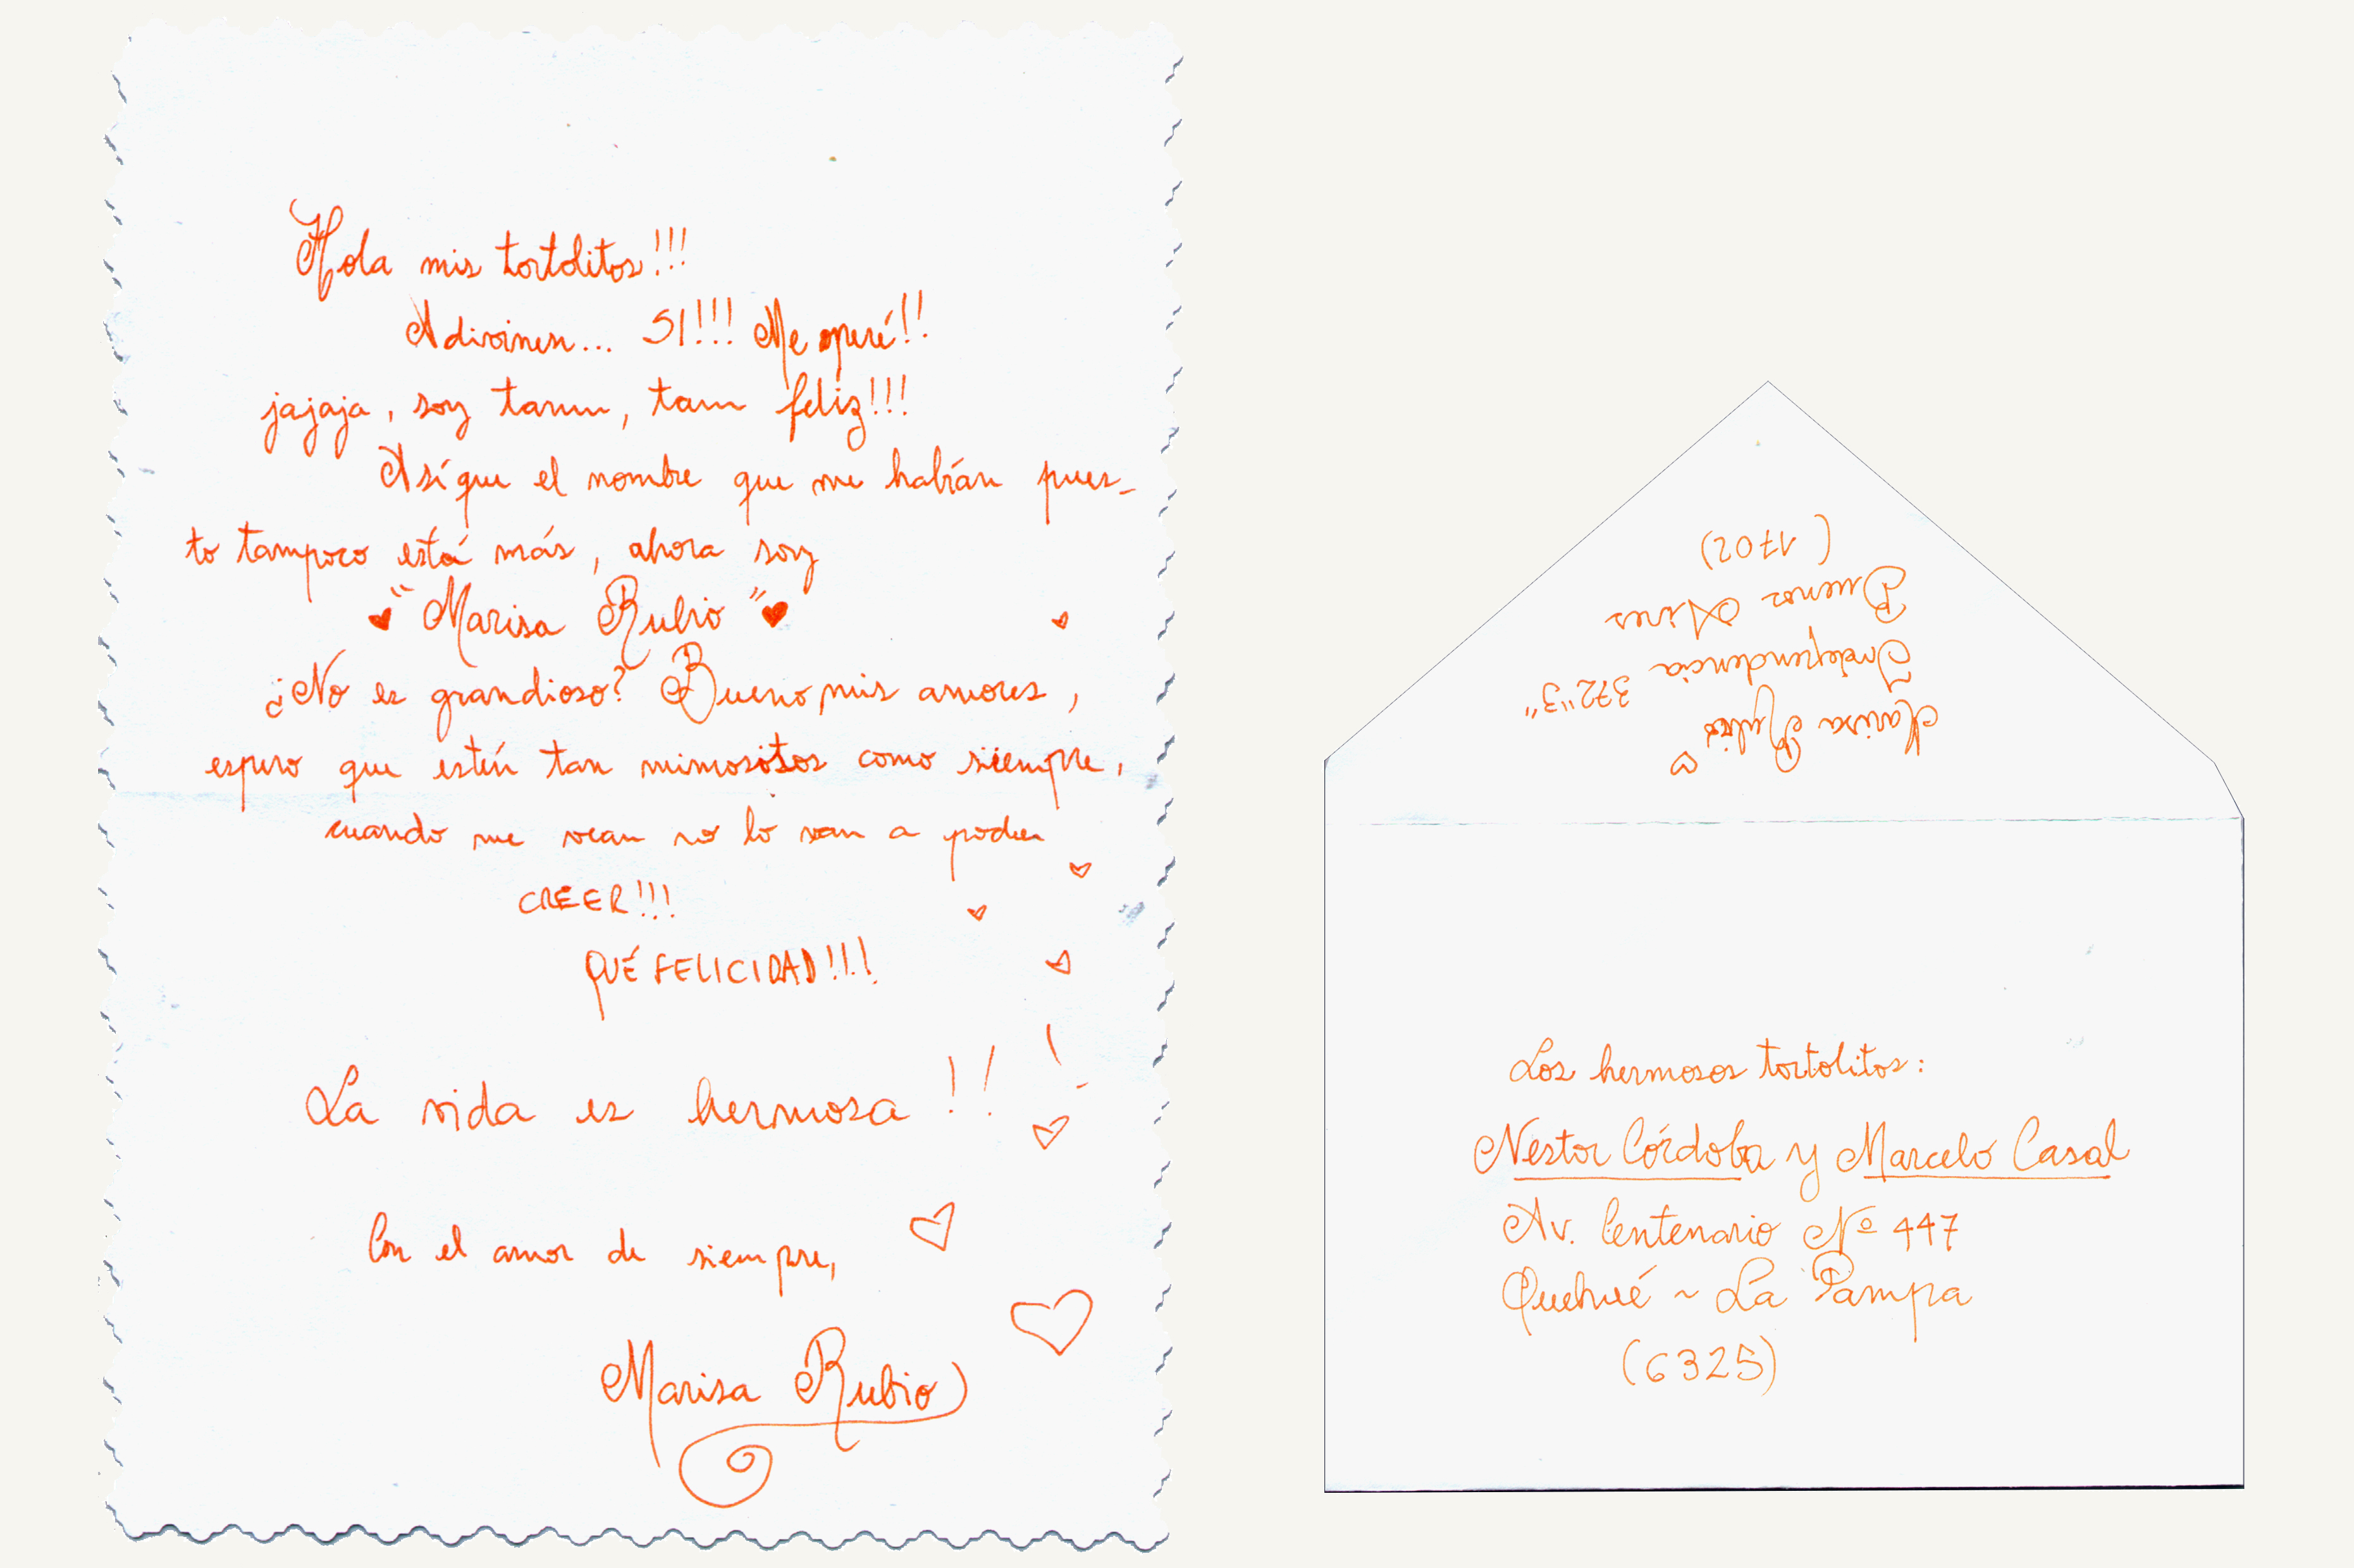 Hola mis tortolitos!!!
Adivinen... SI!!! Me operé!!
jajaja, soy tannn, tann feliz!!!
Así que el nombre que me habían pues-
to tampoco está más, ahora soy
"Marisa Rubio"
¿No es grandioso? Bueno mis amores,
espero que estén tan mimositos como siempre,
cuando me vean no lo van a poder
CREER!!!
QUÉ FELICIDAD!!!!
La vida es hermosa!!!
Con el amor de siempre,
Marisa Rubio
Marisa Rubio
Independencia 372 "3"
Buenos Aires
(1702)
Los hermosos tortolitos:
Nestor Córdoba y Marcelo Casal
Av. Centenario Nº 447
Quehué ~ La Pampa
(6325)